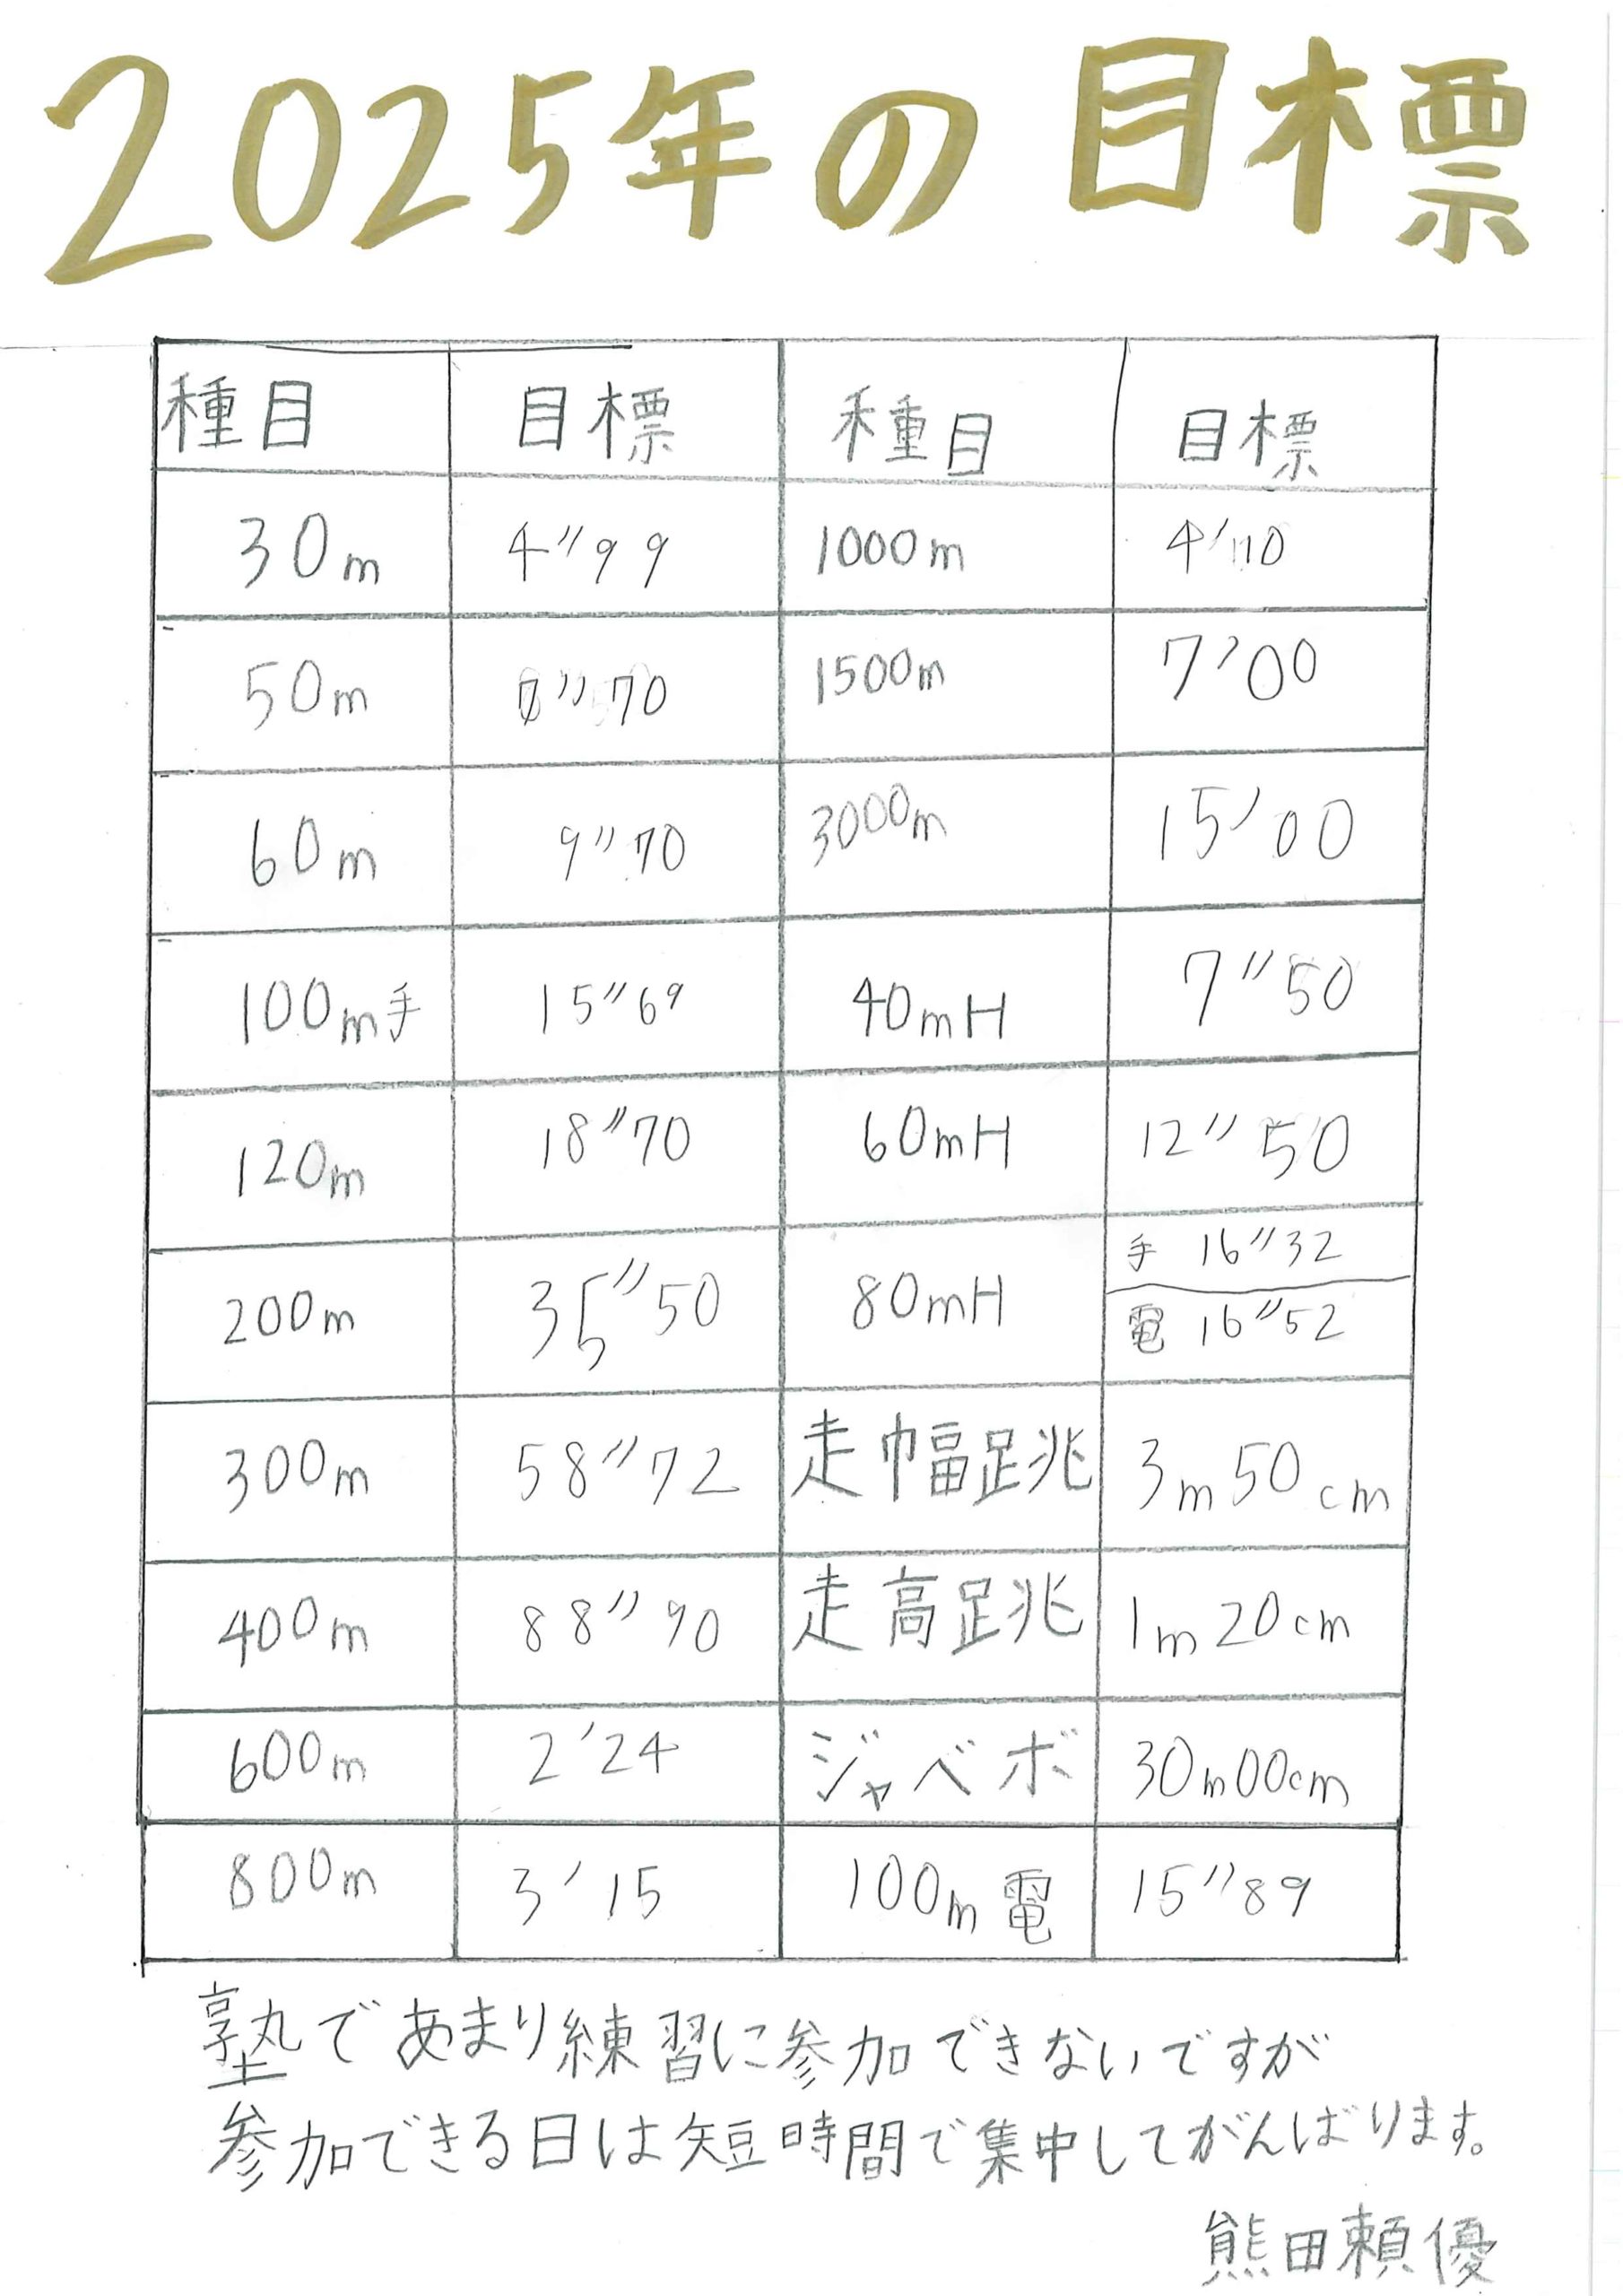 2025年の目標
種目 目標 種目 目標
30m 4"99 1000m 4'10
50m "70 1500m 7'00
60m 9"70 3000m 15'00
100m手 15"69 40mH 7"50
120m 18"70 60mH 12"50
200m 35"50 80mH 手 16"32
電 16"52
300m 58"72 走幅跳 3m50cm
400m 88"90 走高跳 1m20cm
600m 2'24 ジャベボ 30m00cm
800m 3'15 100m電 15"89
塾であまり練習に参加できないですが
参加できる日は短時間で集中してがんばります。
熊田頼優